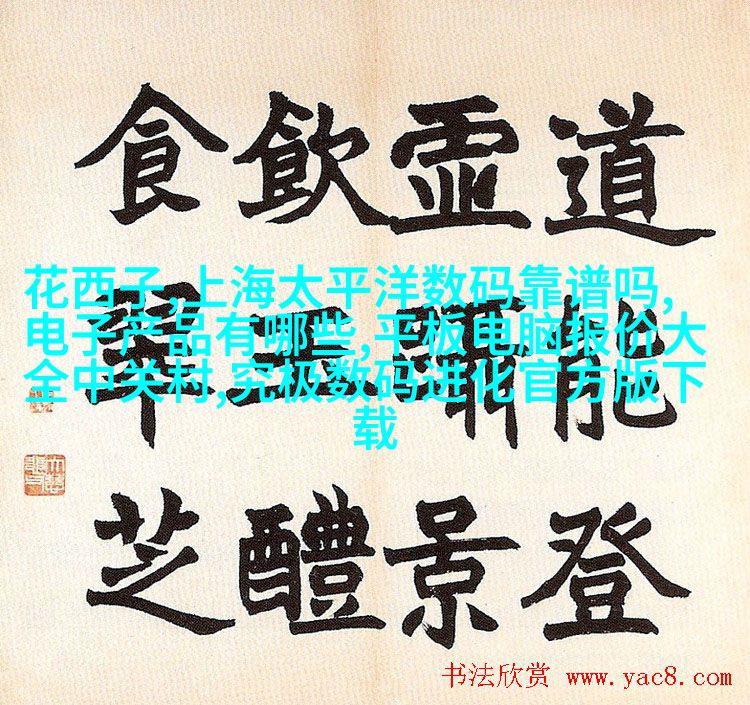 道能登
虛躡景
飲玉醴
食翠芝
花西子,上海太平洋数码靠谱吗,
电子产品有哪些,平板电脑报价大
全中关村,究极数码进化官方版下
载
书法欣赏 www.yac8.com